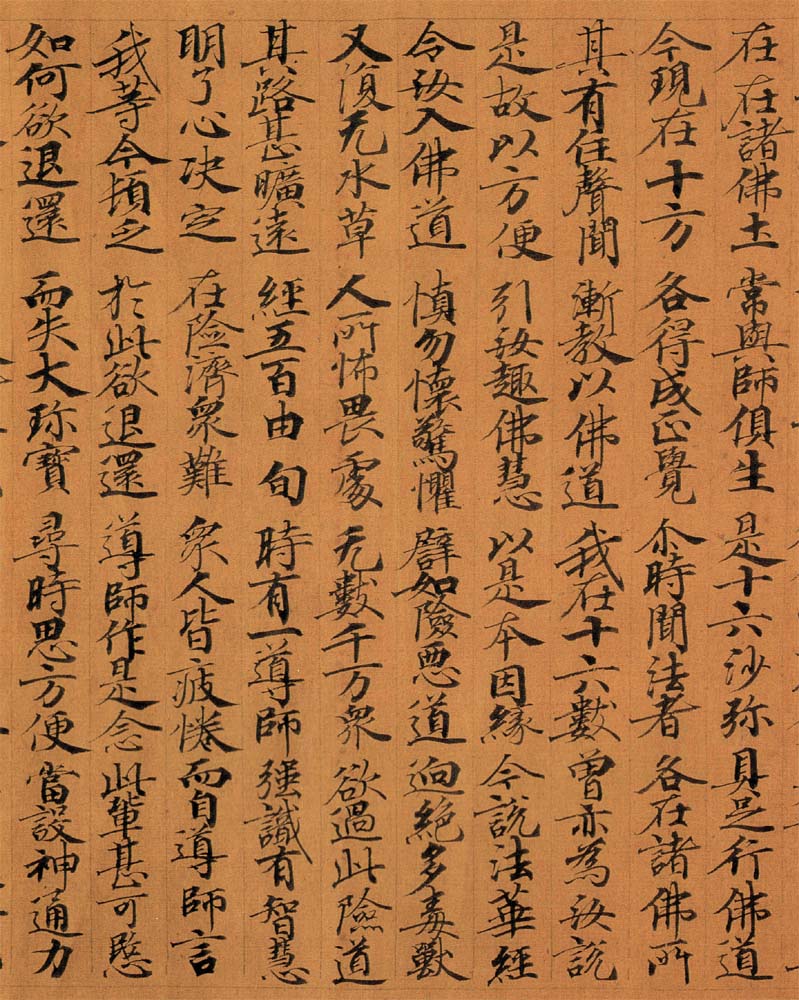 在在諸佛土 常與師俱生 是十六沙弥 具足行佛道
今現在十方 各得成正覺 尒時聞法者 各在諸佛所
其有住聲聞 漸教以佛道 我在十六數 曾亦為汝說
是故以方便 引汝趣佛慧 以是本因緣 今說法華經
令汝入佛道 慎勿懷驚懼 譬如險惡道 迥絕多毒獸
又復无水草 人所怖畏處 无數千万衆 欲過此險道
其路甚曠遠 經五百由旬 時有一導師 強識有智慧
明了心决定 在險濟衆難 衆人皆疲惓 而白導師言
我等今頓乏 於此欲退還 導師作是念 此輩甚可愍
如何欲退還 而失大珎寶 尋時思方便 當設神通力